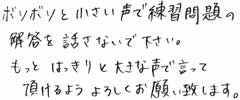 ボソボソと小さい声で練習問題の
解答を話さないで下さい。
もっとはっきりと大きな声で言って
頂けるようよろしくお願い致します。